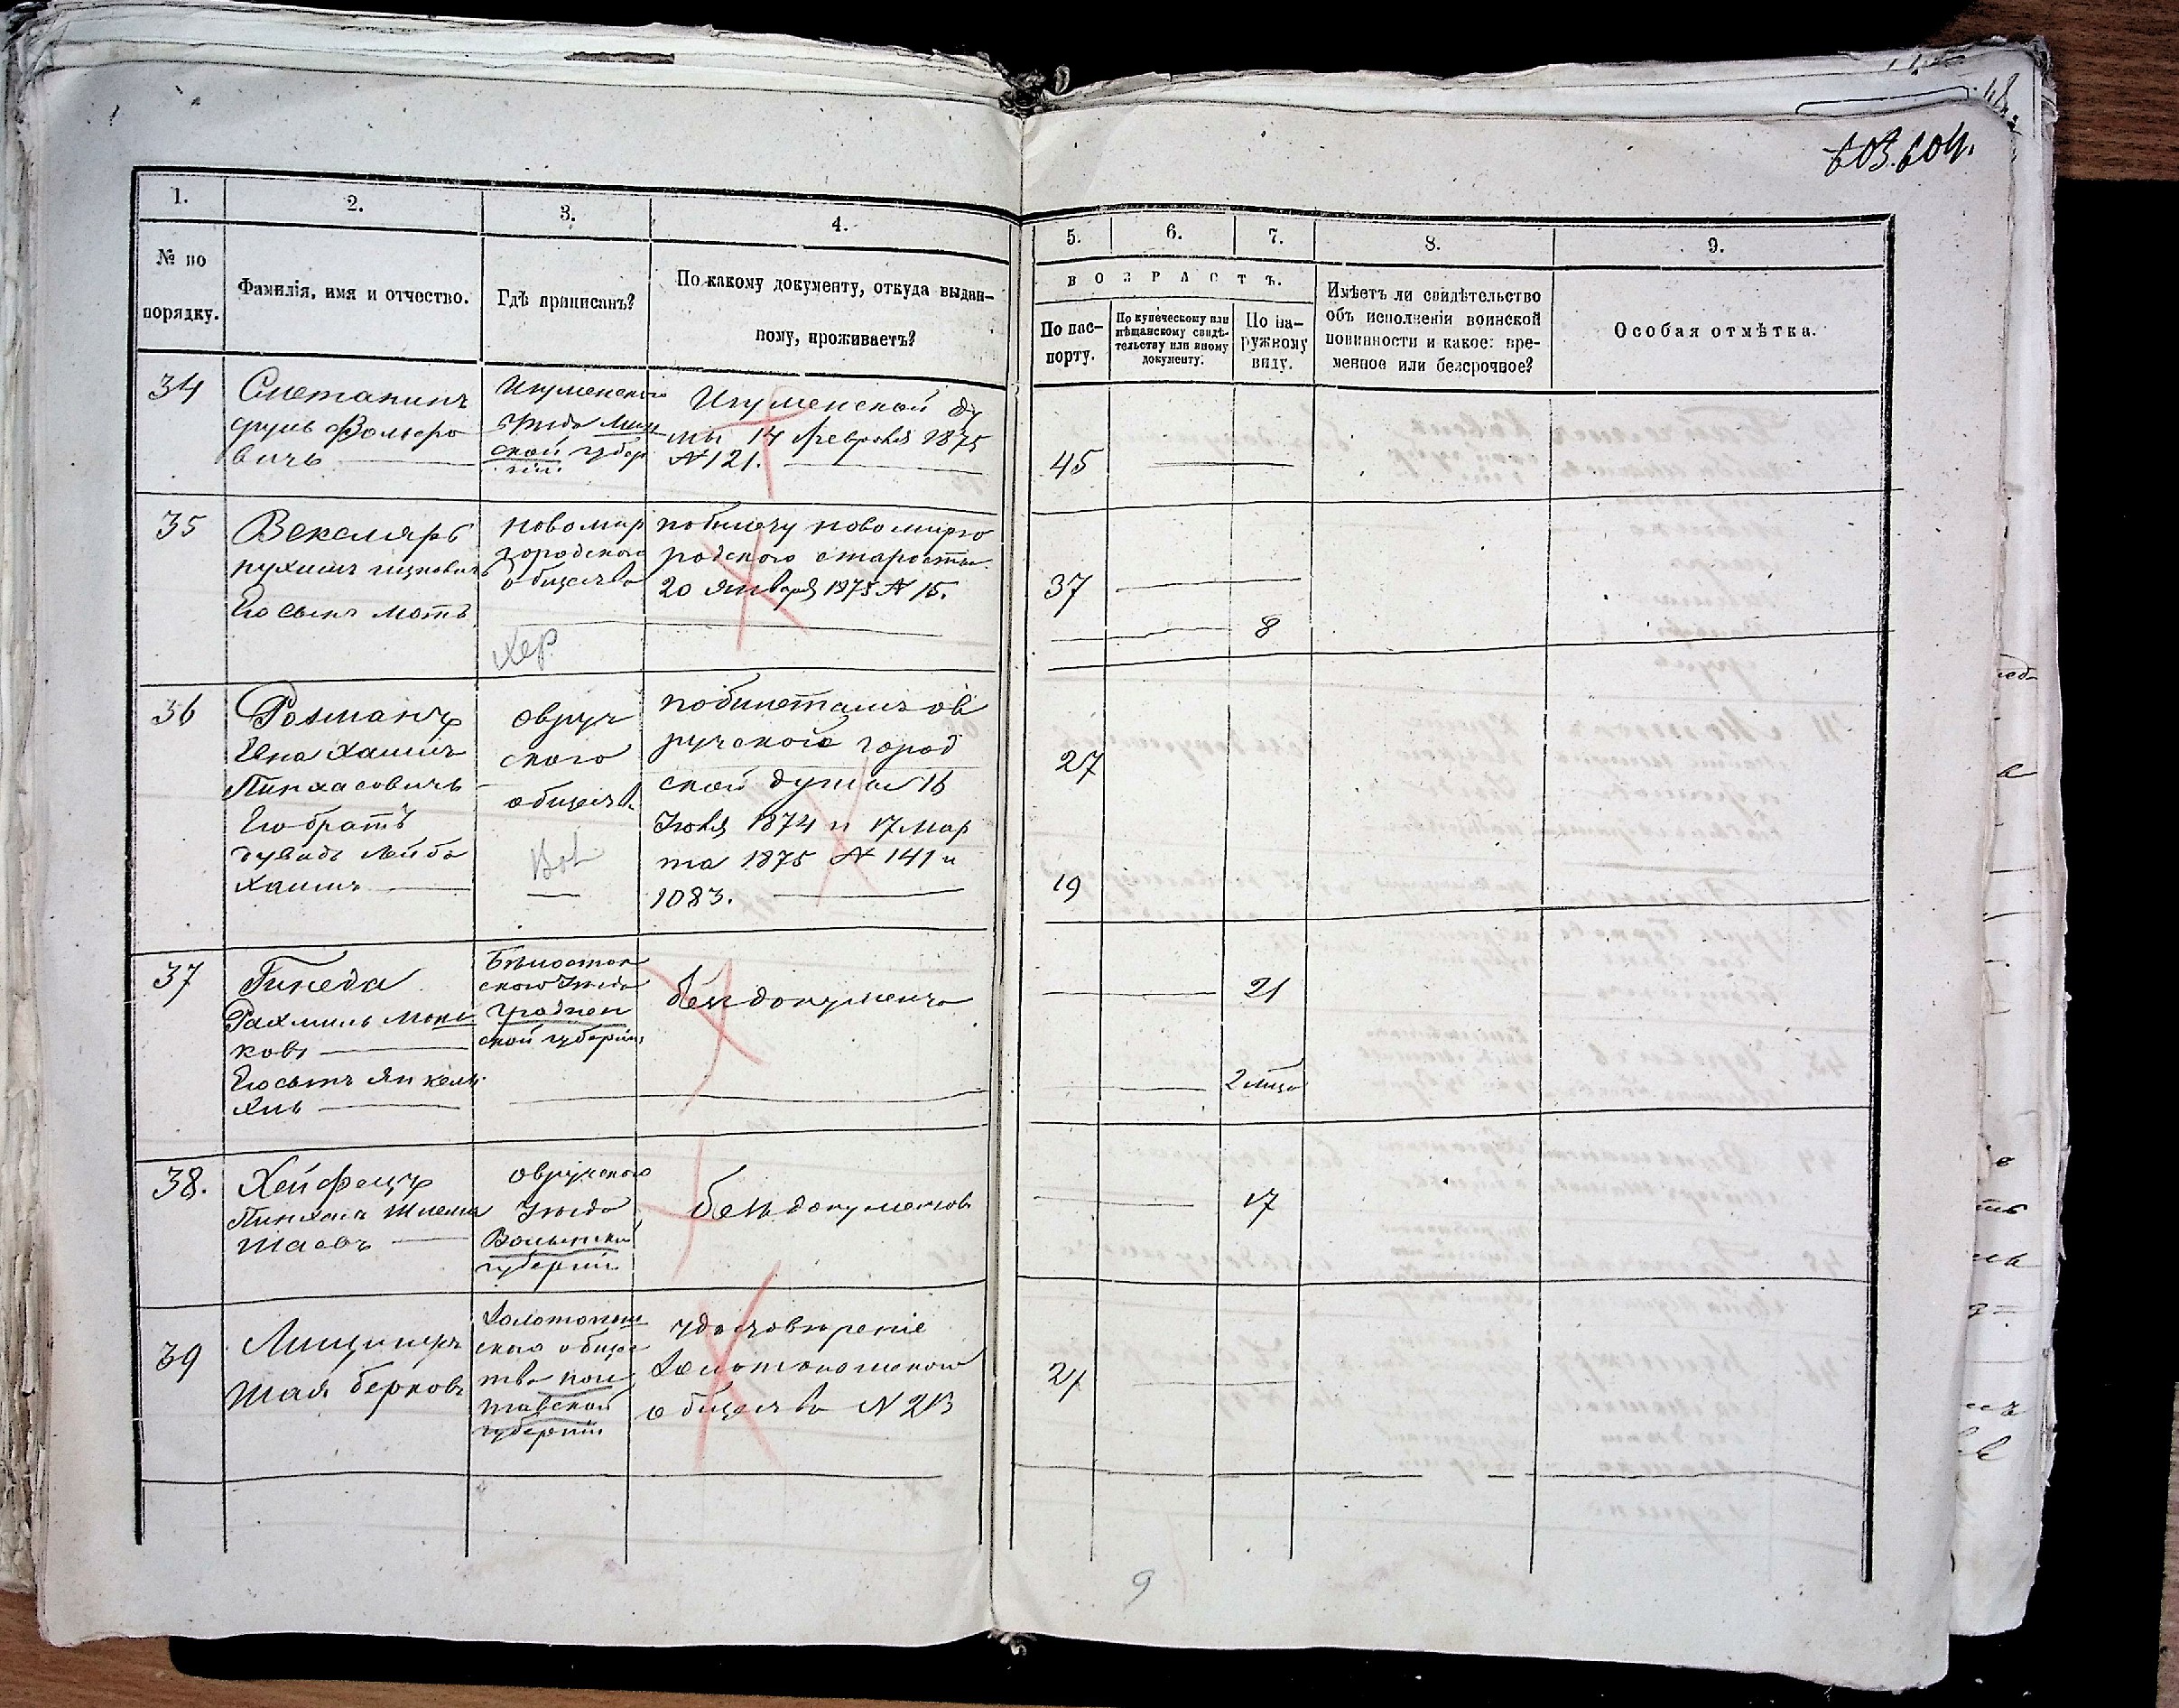 603.604.
1.
2.
3.
4.
5.
6.
7.
8.
9.
№ по
порядку.
Фамилія, имя и отчество.
Гдѣ приписанъ?
По какому документу, откуда выдан-
ному, проживаетъ?
ВОЗРАСТЪ.
По пас-
порту.
По купеческому или
мѣщанскому свидѣ-
тельству или иному
документу.
По на-
ружному
виду.
Имѣетъ ли свидѣтельство
объ исполненіи воинской
повинности и какое: вре-
менное или безсрочное?
Особая отмѣтка.
34
Сметанинъ
Вольфо
вичъ
Игуменскаго
уѣзда Мин
ской губер
ніи
Игуменской ду
мы 14 февраля 1875
№ 121.
45
35
Векслярь
Ицковичъ
Его сынъ Мотъ
новомир
городского
общества
Хер
по билету новомирго
родского старосты
20 января 1875 № 15.
37
8
36
Ротманъ
Хаимъ
Пинхасовичъ
Его братъ
Лейба
Хаимъ
овруч
ского
обществ
Вол
по билетамъ ов
ручской город
ской думы 16
Іюля 1874 и 17 мар
та 1875 № 141 и
1083.
27
19
37
Гинеда
Рахмиль
ковъ
Его сынъ Янкель
Хиль
Бѣлосток
ского уѣзда
Гроднен
ской губерніи
без документа
21
2 мѣс
38.
Хейфецъ
Пинхасъ Шлема
Шаевъ
овручского
уѣзда
Волынской
губерніи
без документов
17
39
Лищинеръ
Шая Берковъ
Золотонош
скаго общес
тва Пол
тавской
губерніи
удостовѣреніе
Золотоношского
общества № 213
21
9